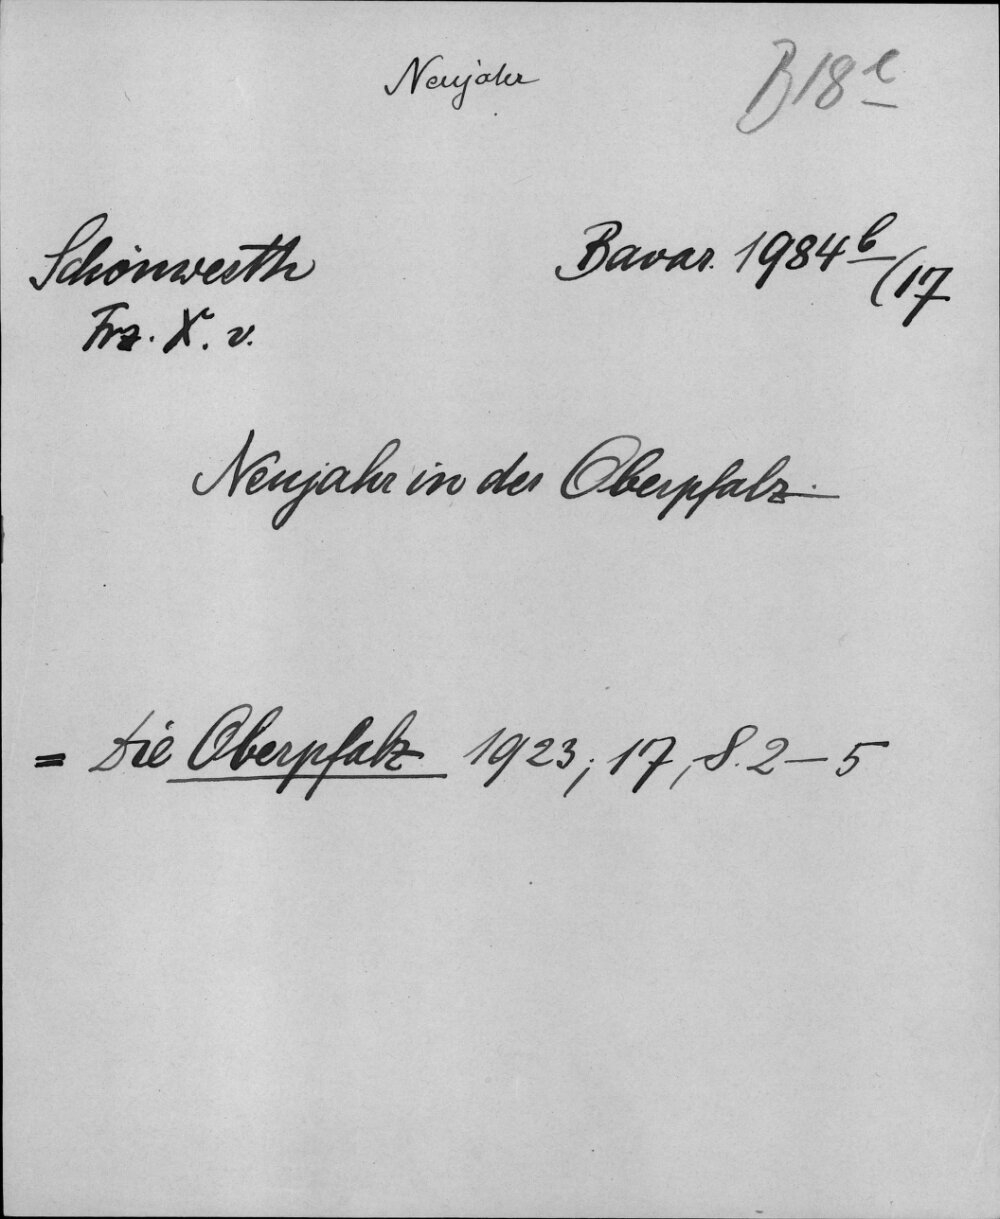 Neujahr
B18e
Schönwerth
Frz. X. v.
Bavar. 1984 b/(17
Neujahr in der Oberpfalz.
= Die Oberpfalz 1923; 17, S. 2–5